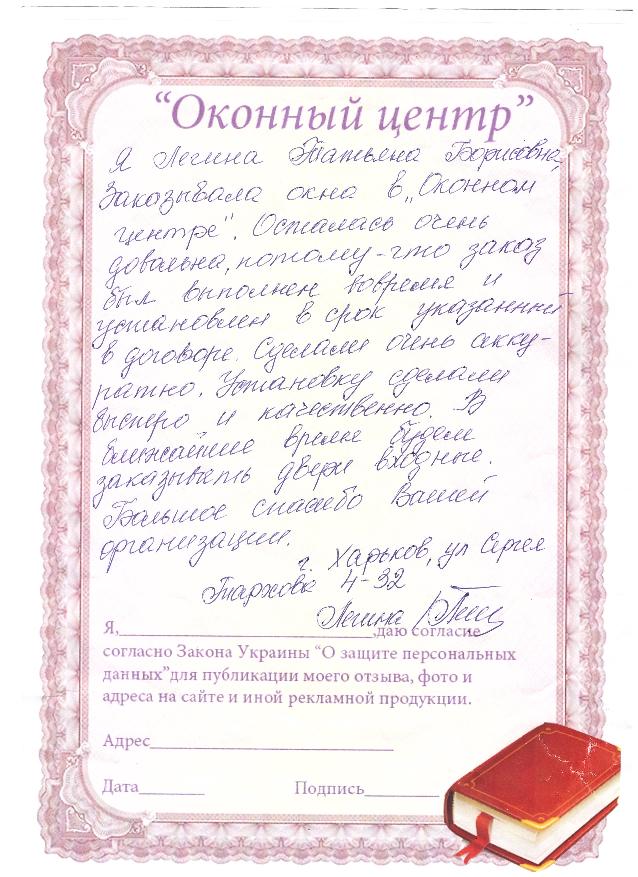 “Оконный центр”
Я Легина Татьяна Борисовна,
Заказывала окна в „Оконном
центре". Осталась очень
довольна, потому-что заказ
был выполнен вовремя и
установлен в срок указанный
в договоре. Сделали очень акку-
ратно. Установку сделали
быстро и качественно. В
ближайшие время будем
заказывать двери входные.
Большое спасибо Вашей
организации.
г. Харьков, ул Сергея
Тархова 4-32
Легина
Я,____________________________,даю согласие
согласно Закона Украины “О защите персональных
данных”для публикации моего отзыва, фото и
адреса на сайте и иной рекламной продукции.
Адрес___________________________
Дата_______ Подпись________